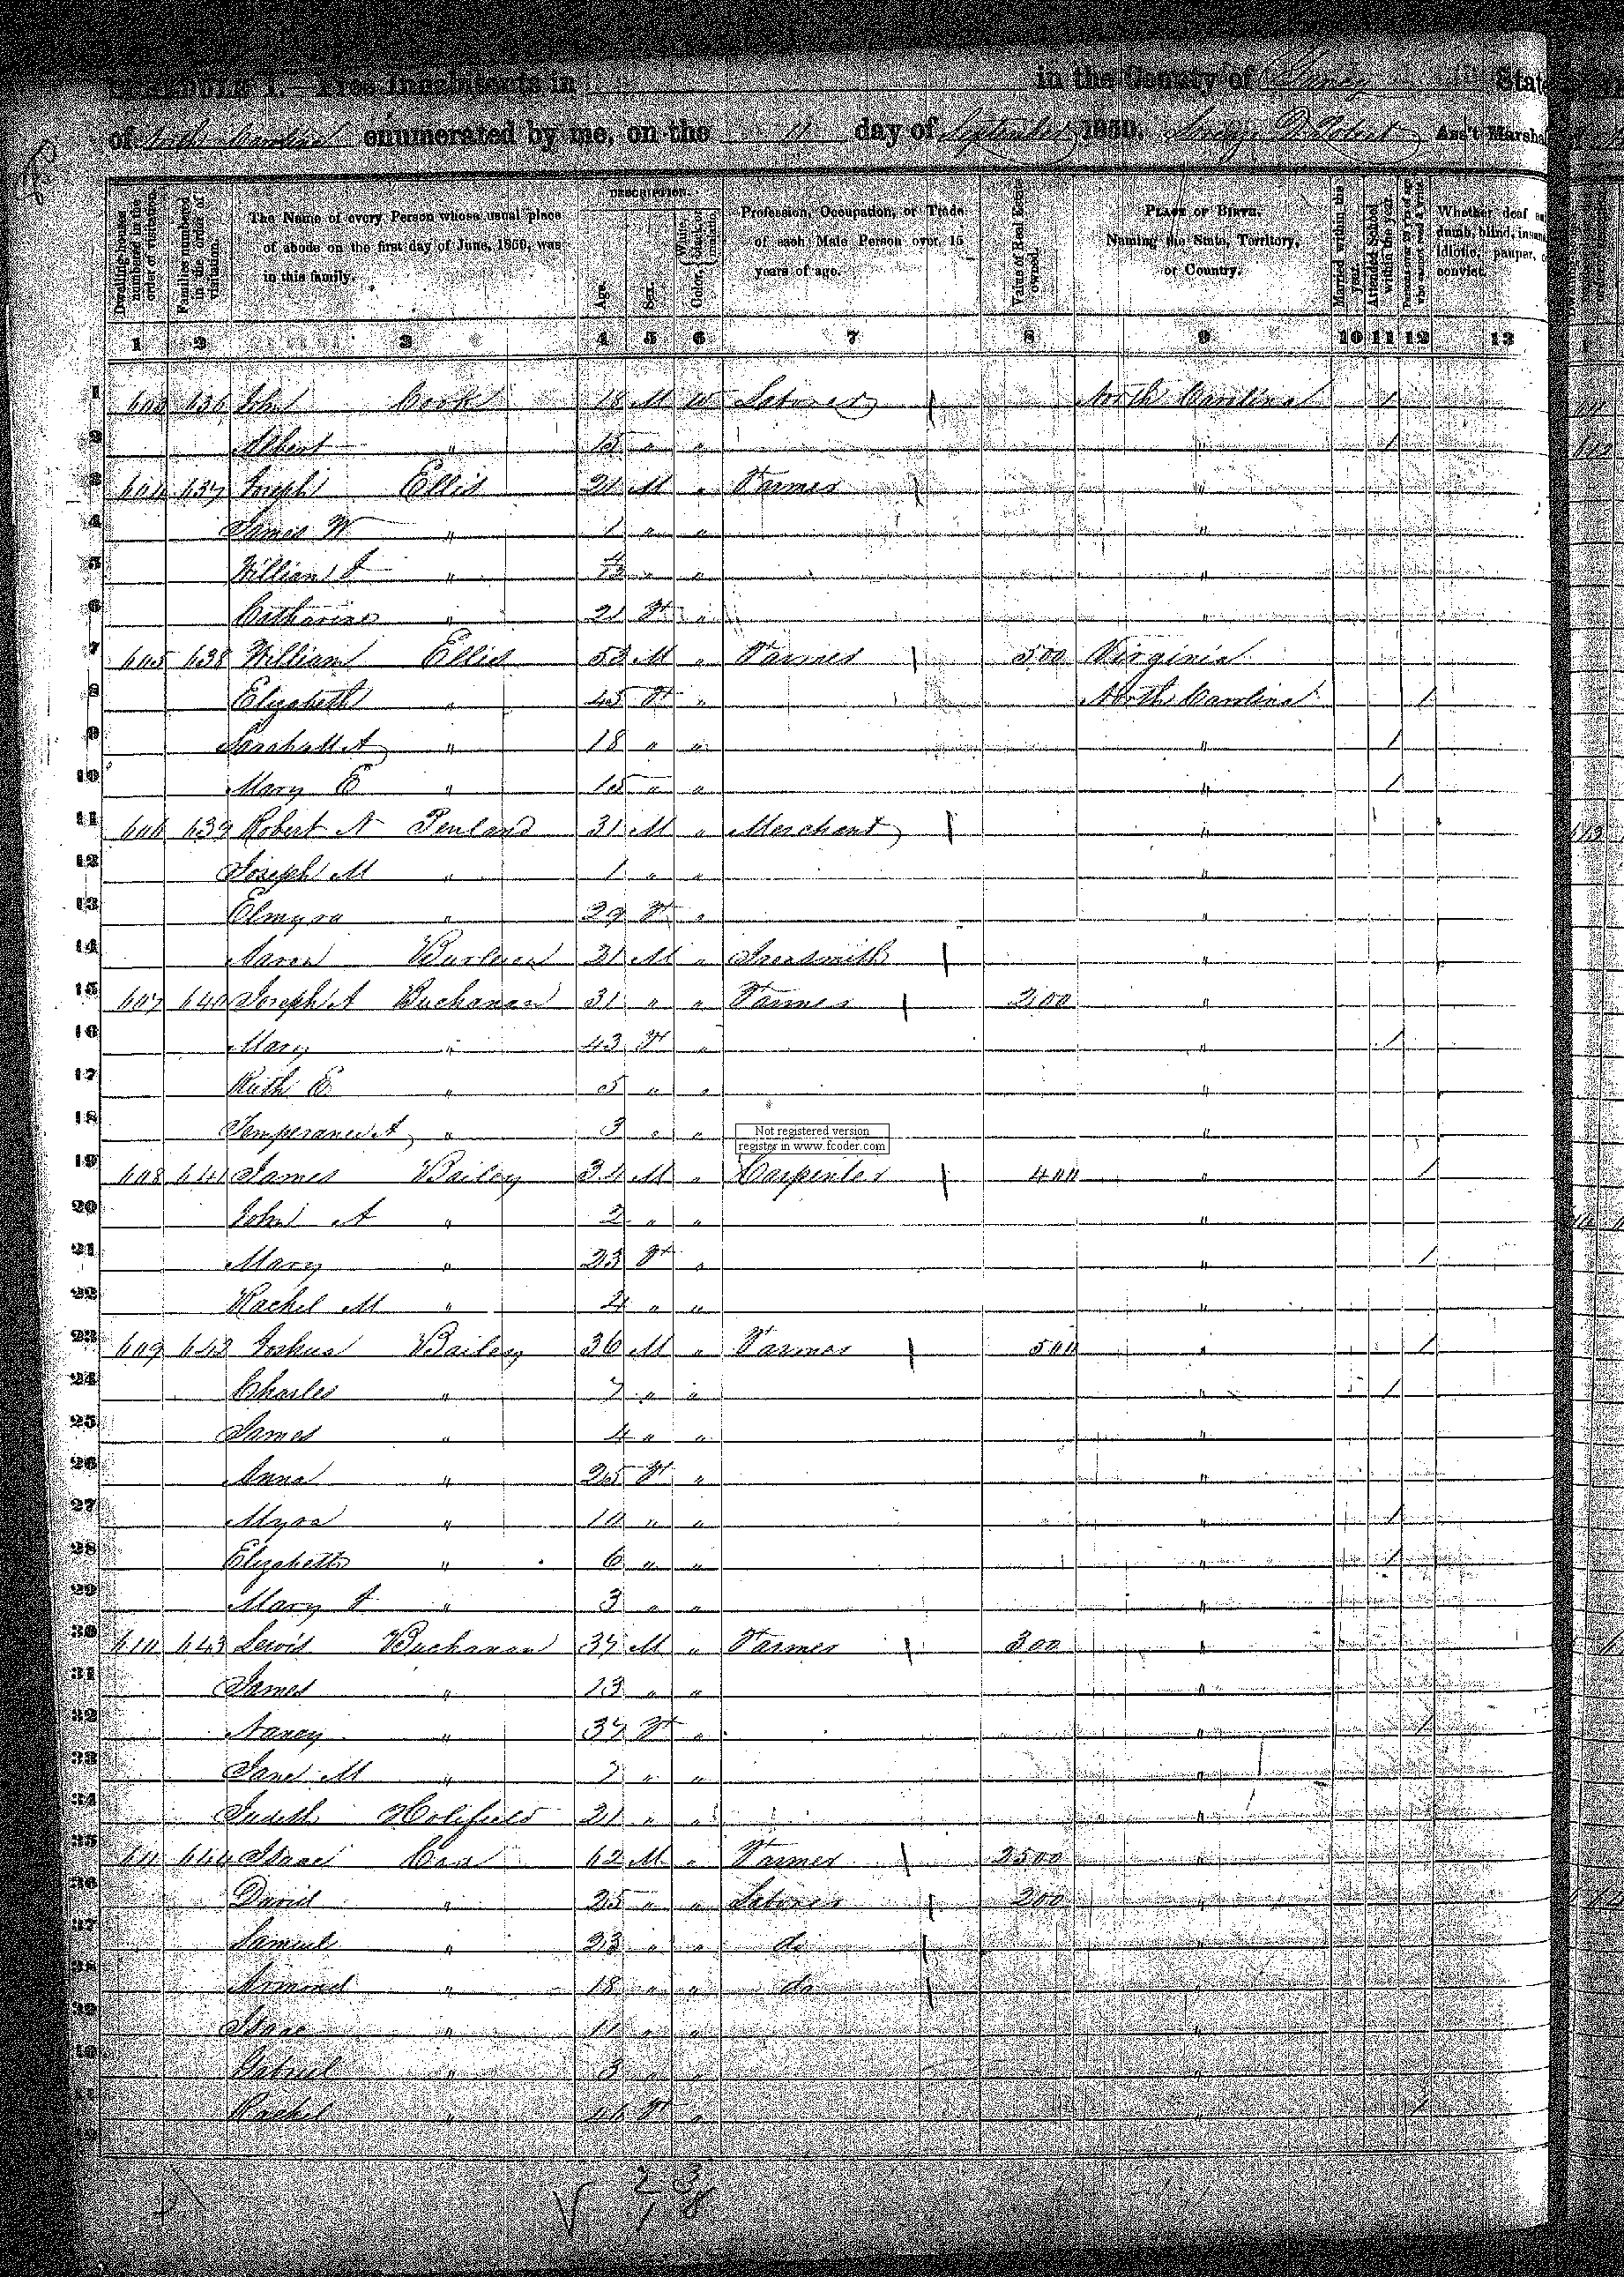 SCHEDULE I.—Free Inhabitants in in the County of Yancy State
of North Carolina enumerated by me, on the 11 day of September 1850. Ass't Marshal
Dwelling-houses numbered in the order of visitation.
Families numbered in the order of visitation.
The Name of every Person whose usual place of abode on the first day of June, 1850, was in this family.
DESCRIPTION.
Age.
Sex.
Color, White, black, or mulatto.
Profession, Occupation, or Trade of each Male Person over 15 years of age.
Value of Real Estate owned.
PLACE OF BIRTH. Naming the State, Territory, or Country.
Married within the year.
Attended School within the year.
Persons over 20 y'rs of age who cannot read & write.
Whether deaf and dumb, blind, insane, idiotic, pauper, or convict.
1 2 3 4 5 6 7 8 9 10 11 12 13
1 603 636 John Cook 18 M W Laborer North Carolina 1
2 Albert " 15 " " " 1
3 604 637 Joseph Ellis 21 M " Farmer "
4 James W " 1 " " "
5 William A " 4/12 " " "
6 Catharine " 21 F " "
7 605 638 William Ellis 52 M " Farmer 500 Virginia
8 Elizabeth " 45 F " North Carolina 1
9 " 18 " " " 1
10 Mary E " 15 " " " 1
11 606 639 Robert N Penland 31 M " Merchant "
12 Joseph M " 1 " " "
13 Elmyra " 29 F " "
14 Aaron Burleson 21 M " "
15 607 640 Joseph A Buchanan 31 " " Farmer 200 "
16 Mary " 43 F " " 1
17 Ruth E " 5 " " "
18 Temperance A " 3 " " "
Not registered version
register in www.fcoder.com
19 608 641 James Bailey 34 M " Carpenter 400 " 1
20 John A " 2 " " "
21 Mary " 23 F " " 1
22 Rachel M " 4 " " "
23 609 642 Joshua Bailey 36 M " Farmer 500 " 1
24 Charles " 7 " " " 1
25 James " 4 " " "
26 Anna " 25 F " "
27 Myra " 10 " " " 1
28 Elizabeth " 6 " " " 1
29 Mary A " 3 " " "
30 610 643 Lewis Buchanan 37 M " Farmer 300 "
31 James " 13 " " "
32 Nancy " 37 F " " 1
33 Jane M " 7 " " "
34 Judith Holifield 21 " " "
35 611 644 Isaac Cox 62 M " Farmer 2500 "
36 David " 25 " " Laborer 200 "
37 Samuel " 23 " " do "
38 " 18 " " do "
39 Isaac " 11 " " "
40 Gabriel " 3 " " "
41 Rachel " 46 F " " 1